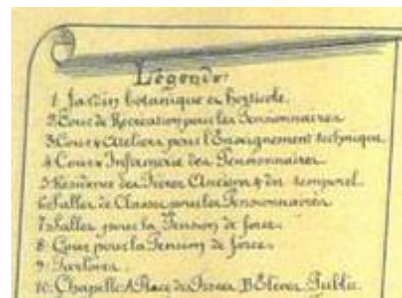 Légende:
1. Jardin botanique et horticole.
2. Cour de Récréation pour les Pensionnaires
3. Cour & Ateliers pour l'Enseignement technique
4. Cour & Infirmerie des Pensionnaires
5. Résidence des Frères Anciens & du temporel.
6. Salles de Classe pour les Pensionnaires
7. Salles pour la Pension de force.
8. Cour pour la Pension de force.
9. Parloirs.
10. Chapelle A Place des Frères B Elèves Public.